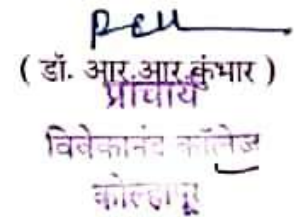 ( डॉ. आर.आर.कुंभार )
प्राचार्य
विवेकानंद कॉलेज
कोल्हापूर